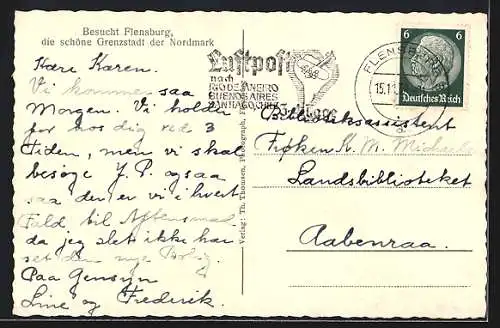 Besucht Flensburg,
die schöne Grenzstadt der Nordmark
Kære Karen.
Vi kommer saa
Morgen. Vi holder
for hos dig ved 3
Tiden, men vi skal
besøge J. P. ogsaa
saa den er vi i hvert
Fald, til Aftensmad
da jeg slet ikke har
set den nye Bolig.
Paa Gensyn
Line og Frederik.
Verlag: Th. Thomsen, Photograph, F
Luftpost
nach
RIO DE JANEIRO
BUENOS AIRES
SANTIAGO CHILE
in
Tagen
FLENSBURG
15.11.
a
6 6
Deutsches Reich
Biblioteksassistent
Frøken K. M. Michaels
Landsbiblioteket
Aabenraa.